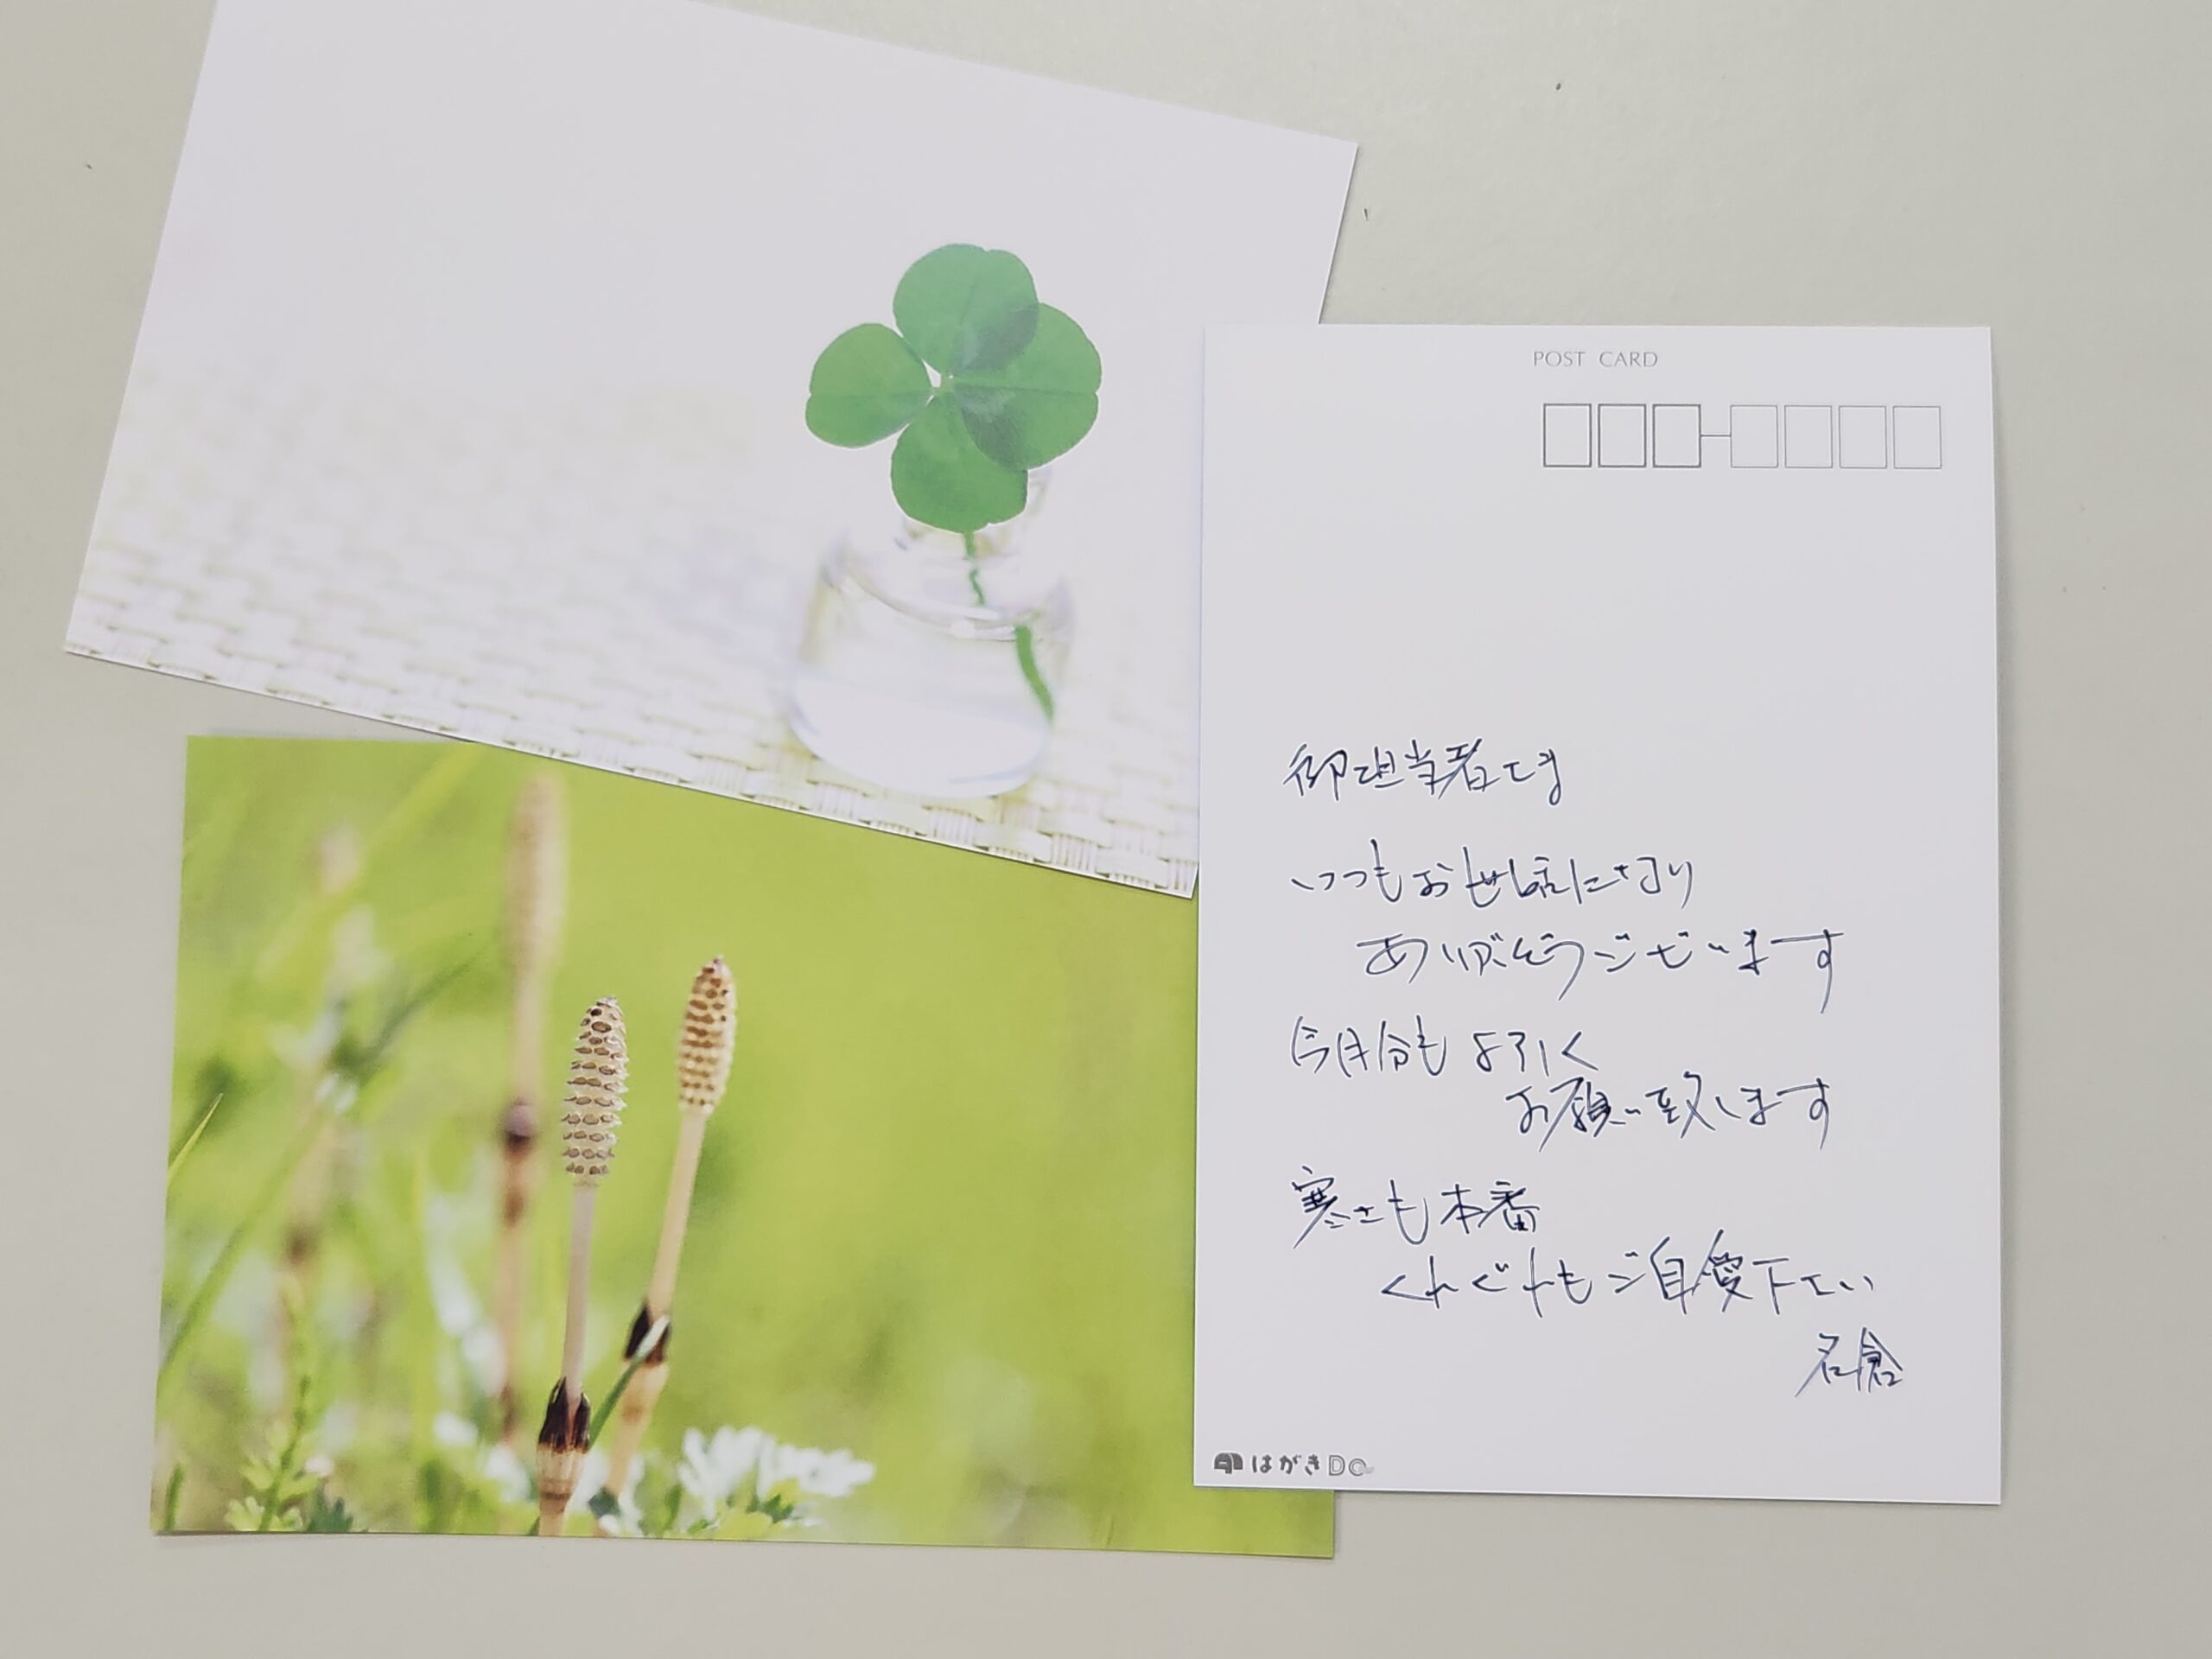 POST CARD
御担当者さま
いつもお世話になり
ありがとうございます
今月分もよろしく
お願い致します
寒さも本番
くれぐれもご自愛下さい
名倉
はがきDo